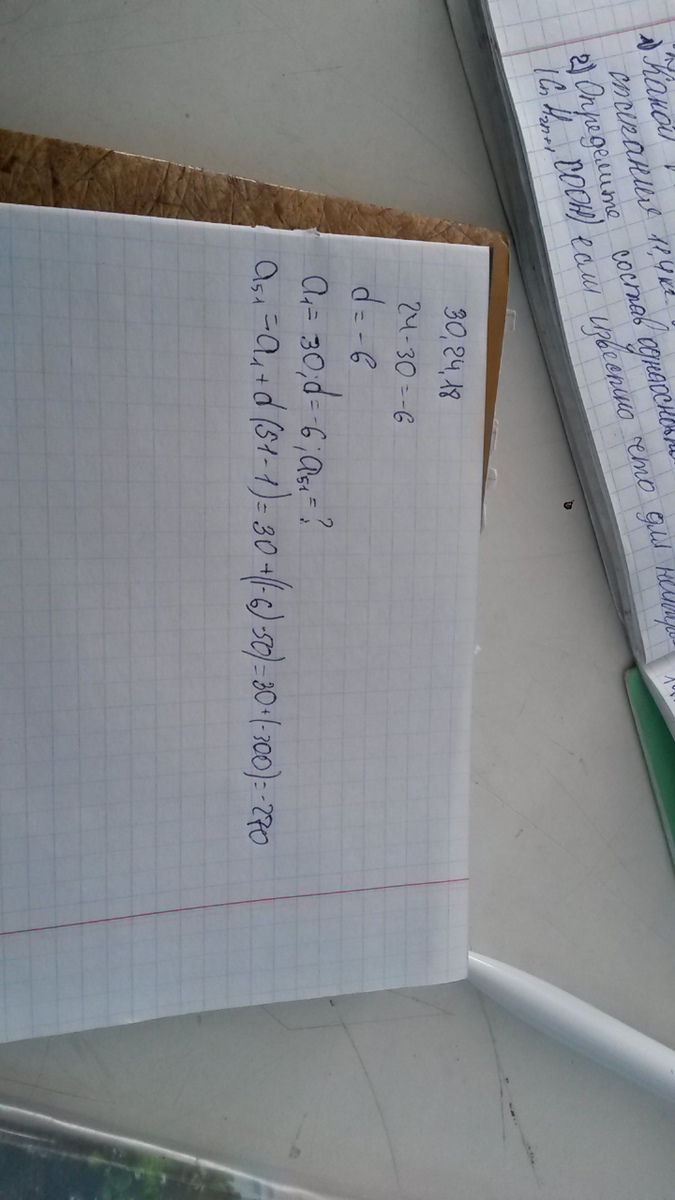 30, 24, 18
24-30=-6
d=-6
a₁=30; d=-6; a₅₁=?
a₅₁=a₁+d(51-1)=30+((-6)·50)=30+(-300)=-270
1) Какой
сгорания 11,4 кг
2) Определите состав одноосновно
(CₙH₂ₙ₊₁COOH) если известно что для